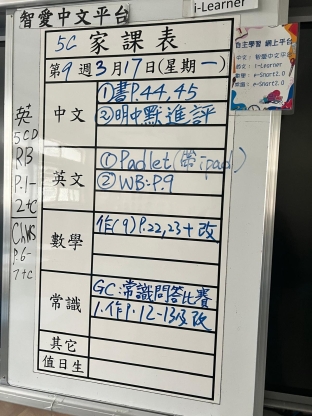 智愛中文平台
i-Learner
自主學習 網上平台
中文: 智愛中文平台
英文: i-Learner
數學: e-Smart2.0
常識: e-Smart2.0
5C 家課表
第9週3月17日(星期一)
中文
①書P.44,45
②明中默進評
英文
①Padlet(帶ipad)
②WB:P.9
數學
作(9)P.22,23+改
常識
GC:常識問答比賽
1.作P.12-13及改
其它
值日生
英
5CD
RB
P.1-
2+c
ChWS
P.6-
7+c